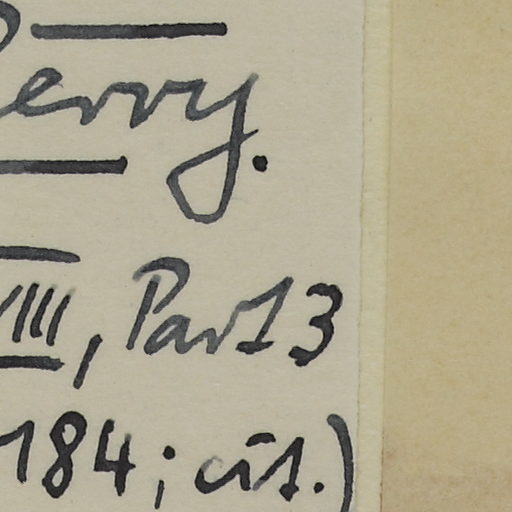 erry.
VIII, Part 3
184; cit.)